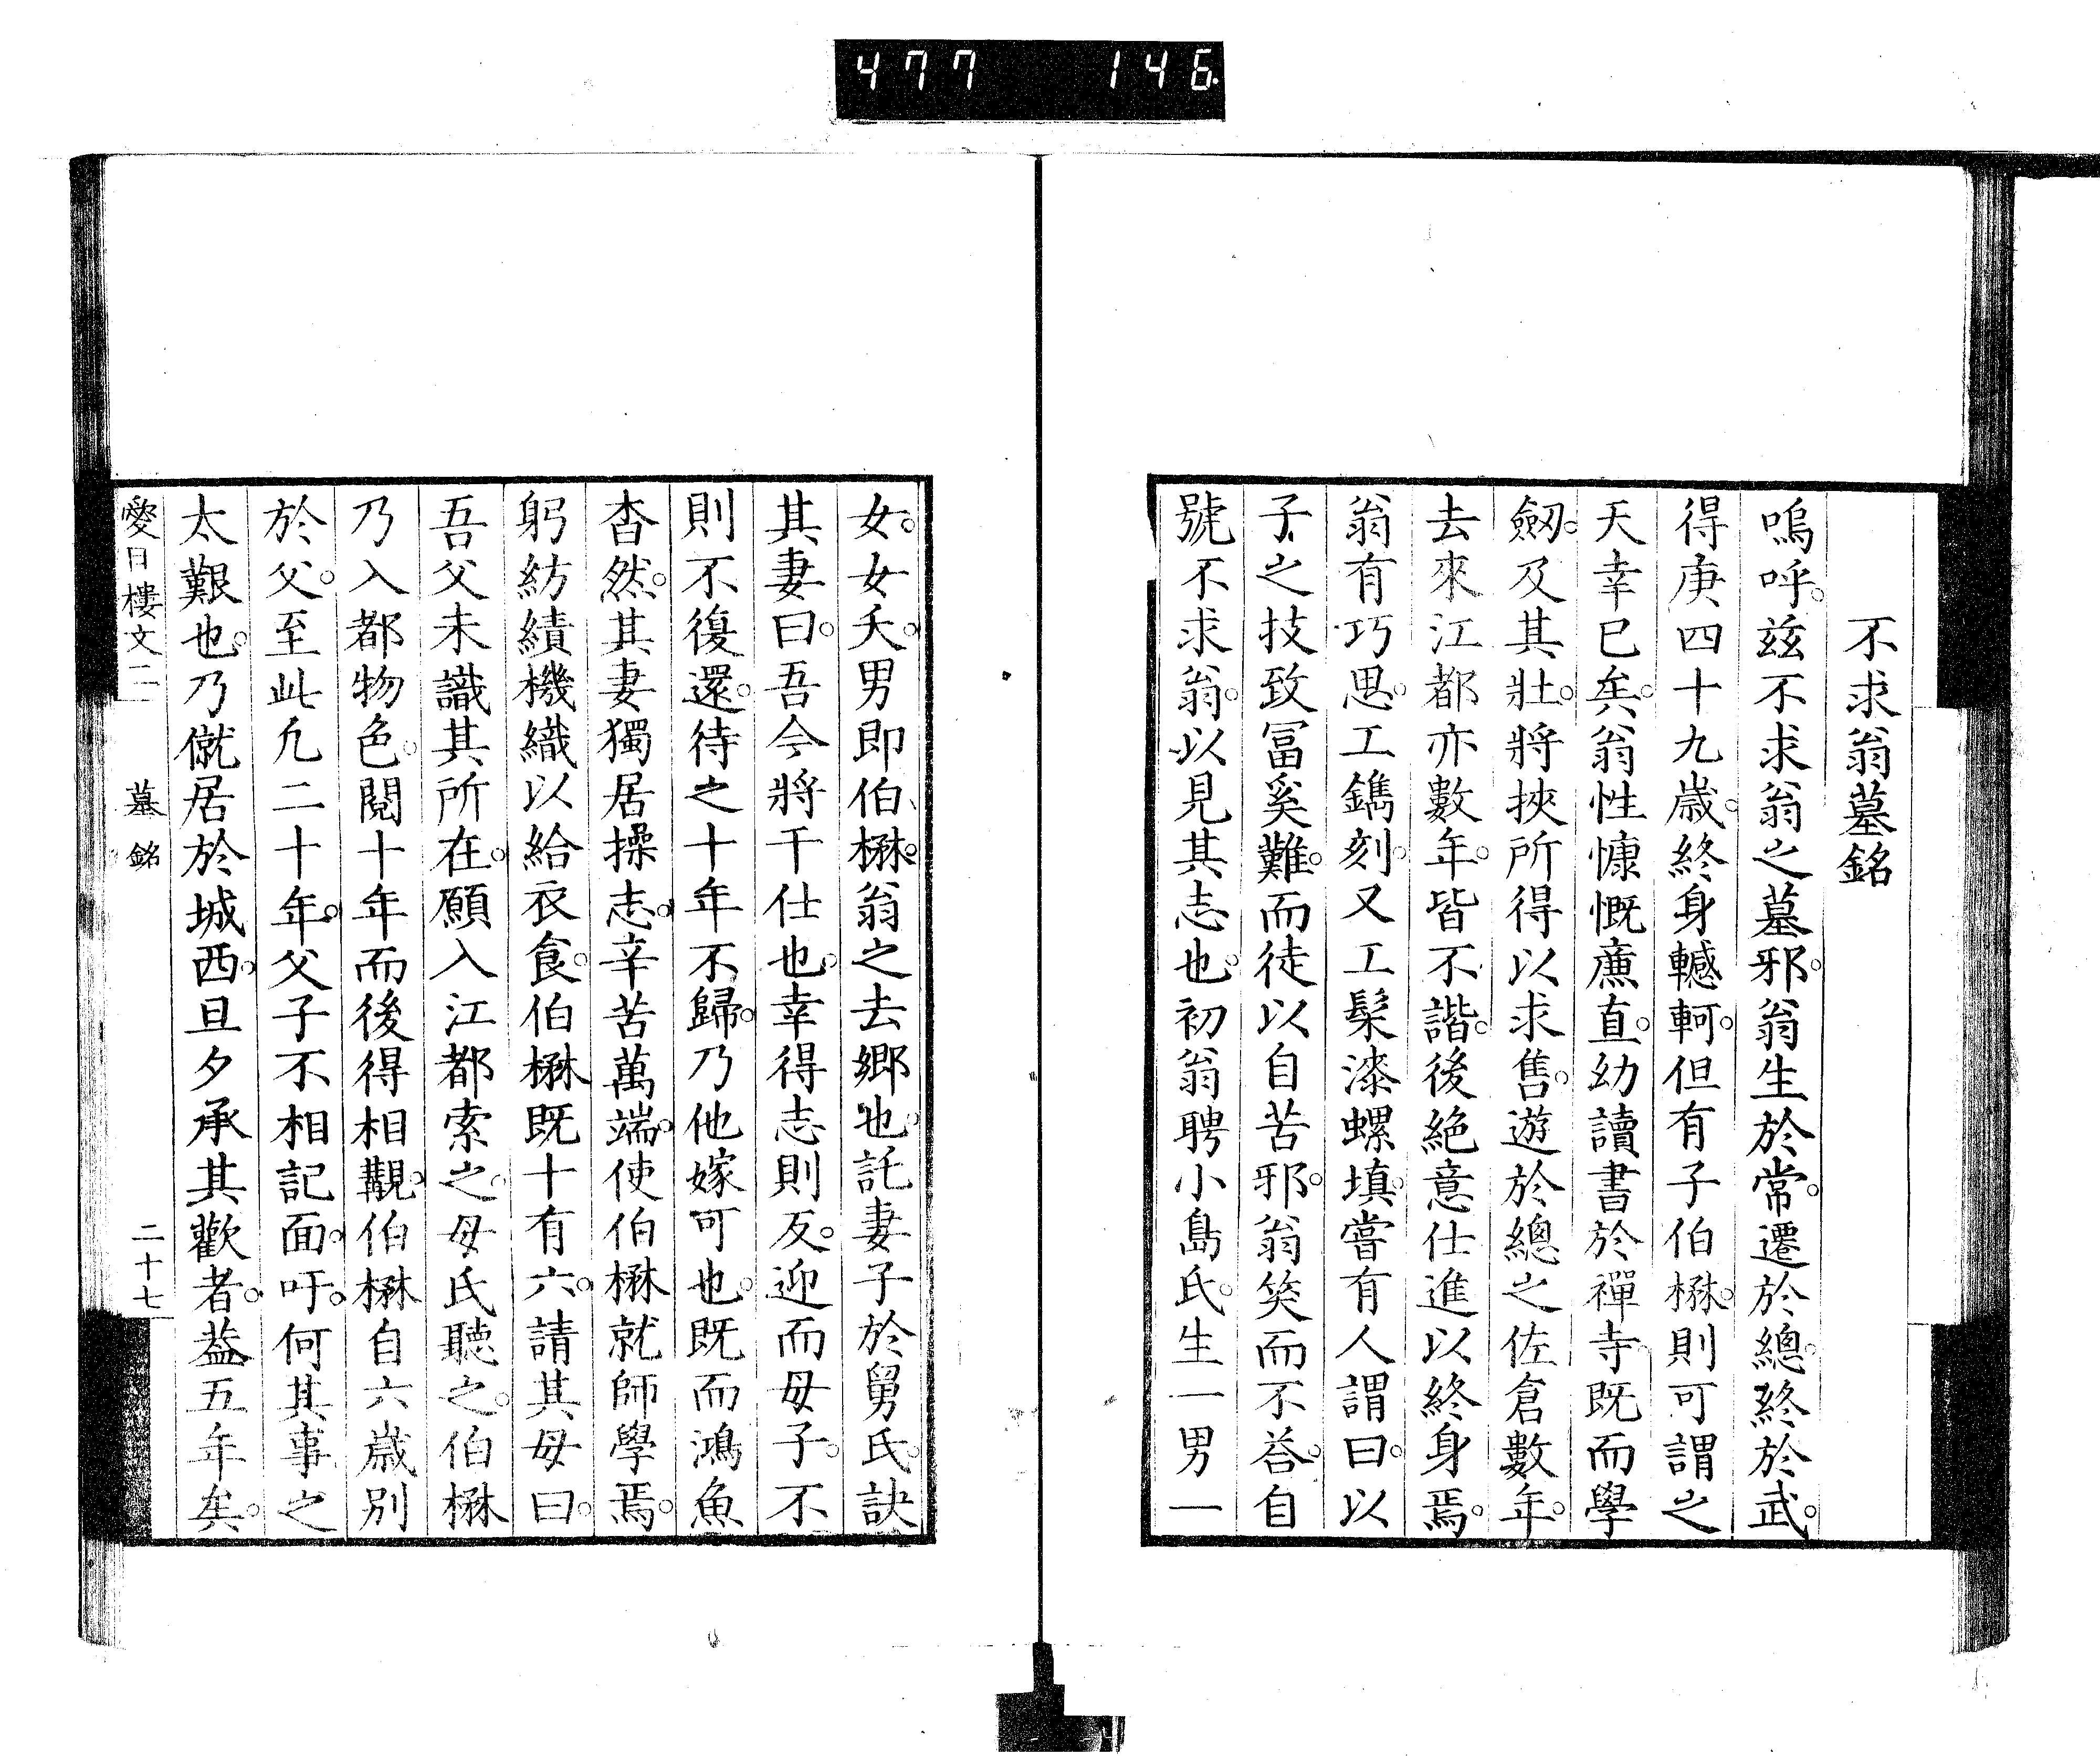 477 146
不求翁墓銘
嗚呼。茲不求翁之墓邪。翁生於常。遷於總。終於武。
得庚四十九歲。終身轗軻。但有子伯楙。則可謂之
天幸已矣。翁性慷慨廉直。幼讀書於禪寺。既而學
劔。及其壯。將挾所得以求售。遊於總之佐倉數年。
去來江都亦數年。皆不諧。後絶意仕進以終身焉。
翁有巧思。工鐫刻。又工髹漆螺填。嘗有人謂曰。以
子之技致冨奚難。而徒以自苦邪。翁笑而不荅。自
號不求翁。以見其志也。初翁聘小島氏。生一男一
女。女夭。男即伯楙。翁之去郷也。託妻子於舅氏。訣
其妻曰。吾今將干仕也。幸得志則反。迎而母子。不
則不復還。待之十年不歸。乃他嫁可也。既而鴻魚
杳然。其妻獨居操志。辛苦萬端。使伯楙就師學焉。
躬紡績機織以給衣食。伯楙既十有六。請其母曰。
吾父未識其所在。願入江都索之。母氏聽之。伯楙
乃入都物色。閱十年而後得相覯。伯楙自六歲別
於父。至此凢二十年。父子不相記面。吁。何其事之
太艱也。乃僦居於城西。旦夕承其歡者。葢五年矣。
愛日樓文二　墓銘　二十七